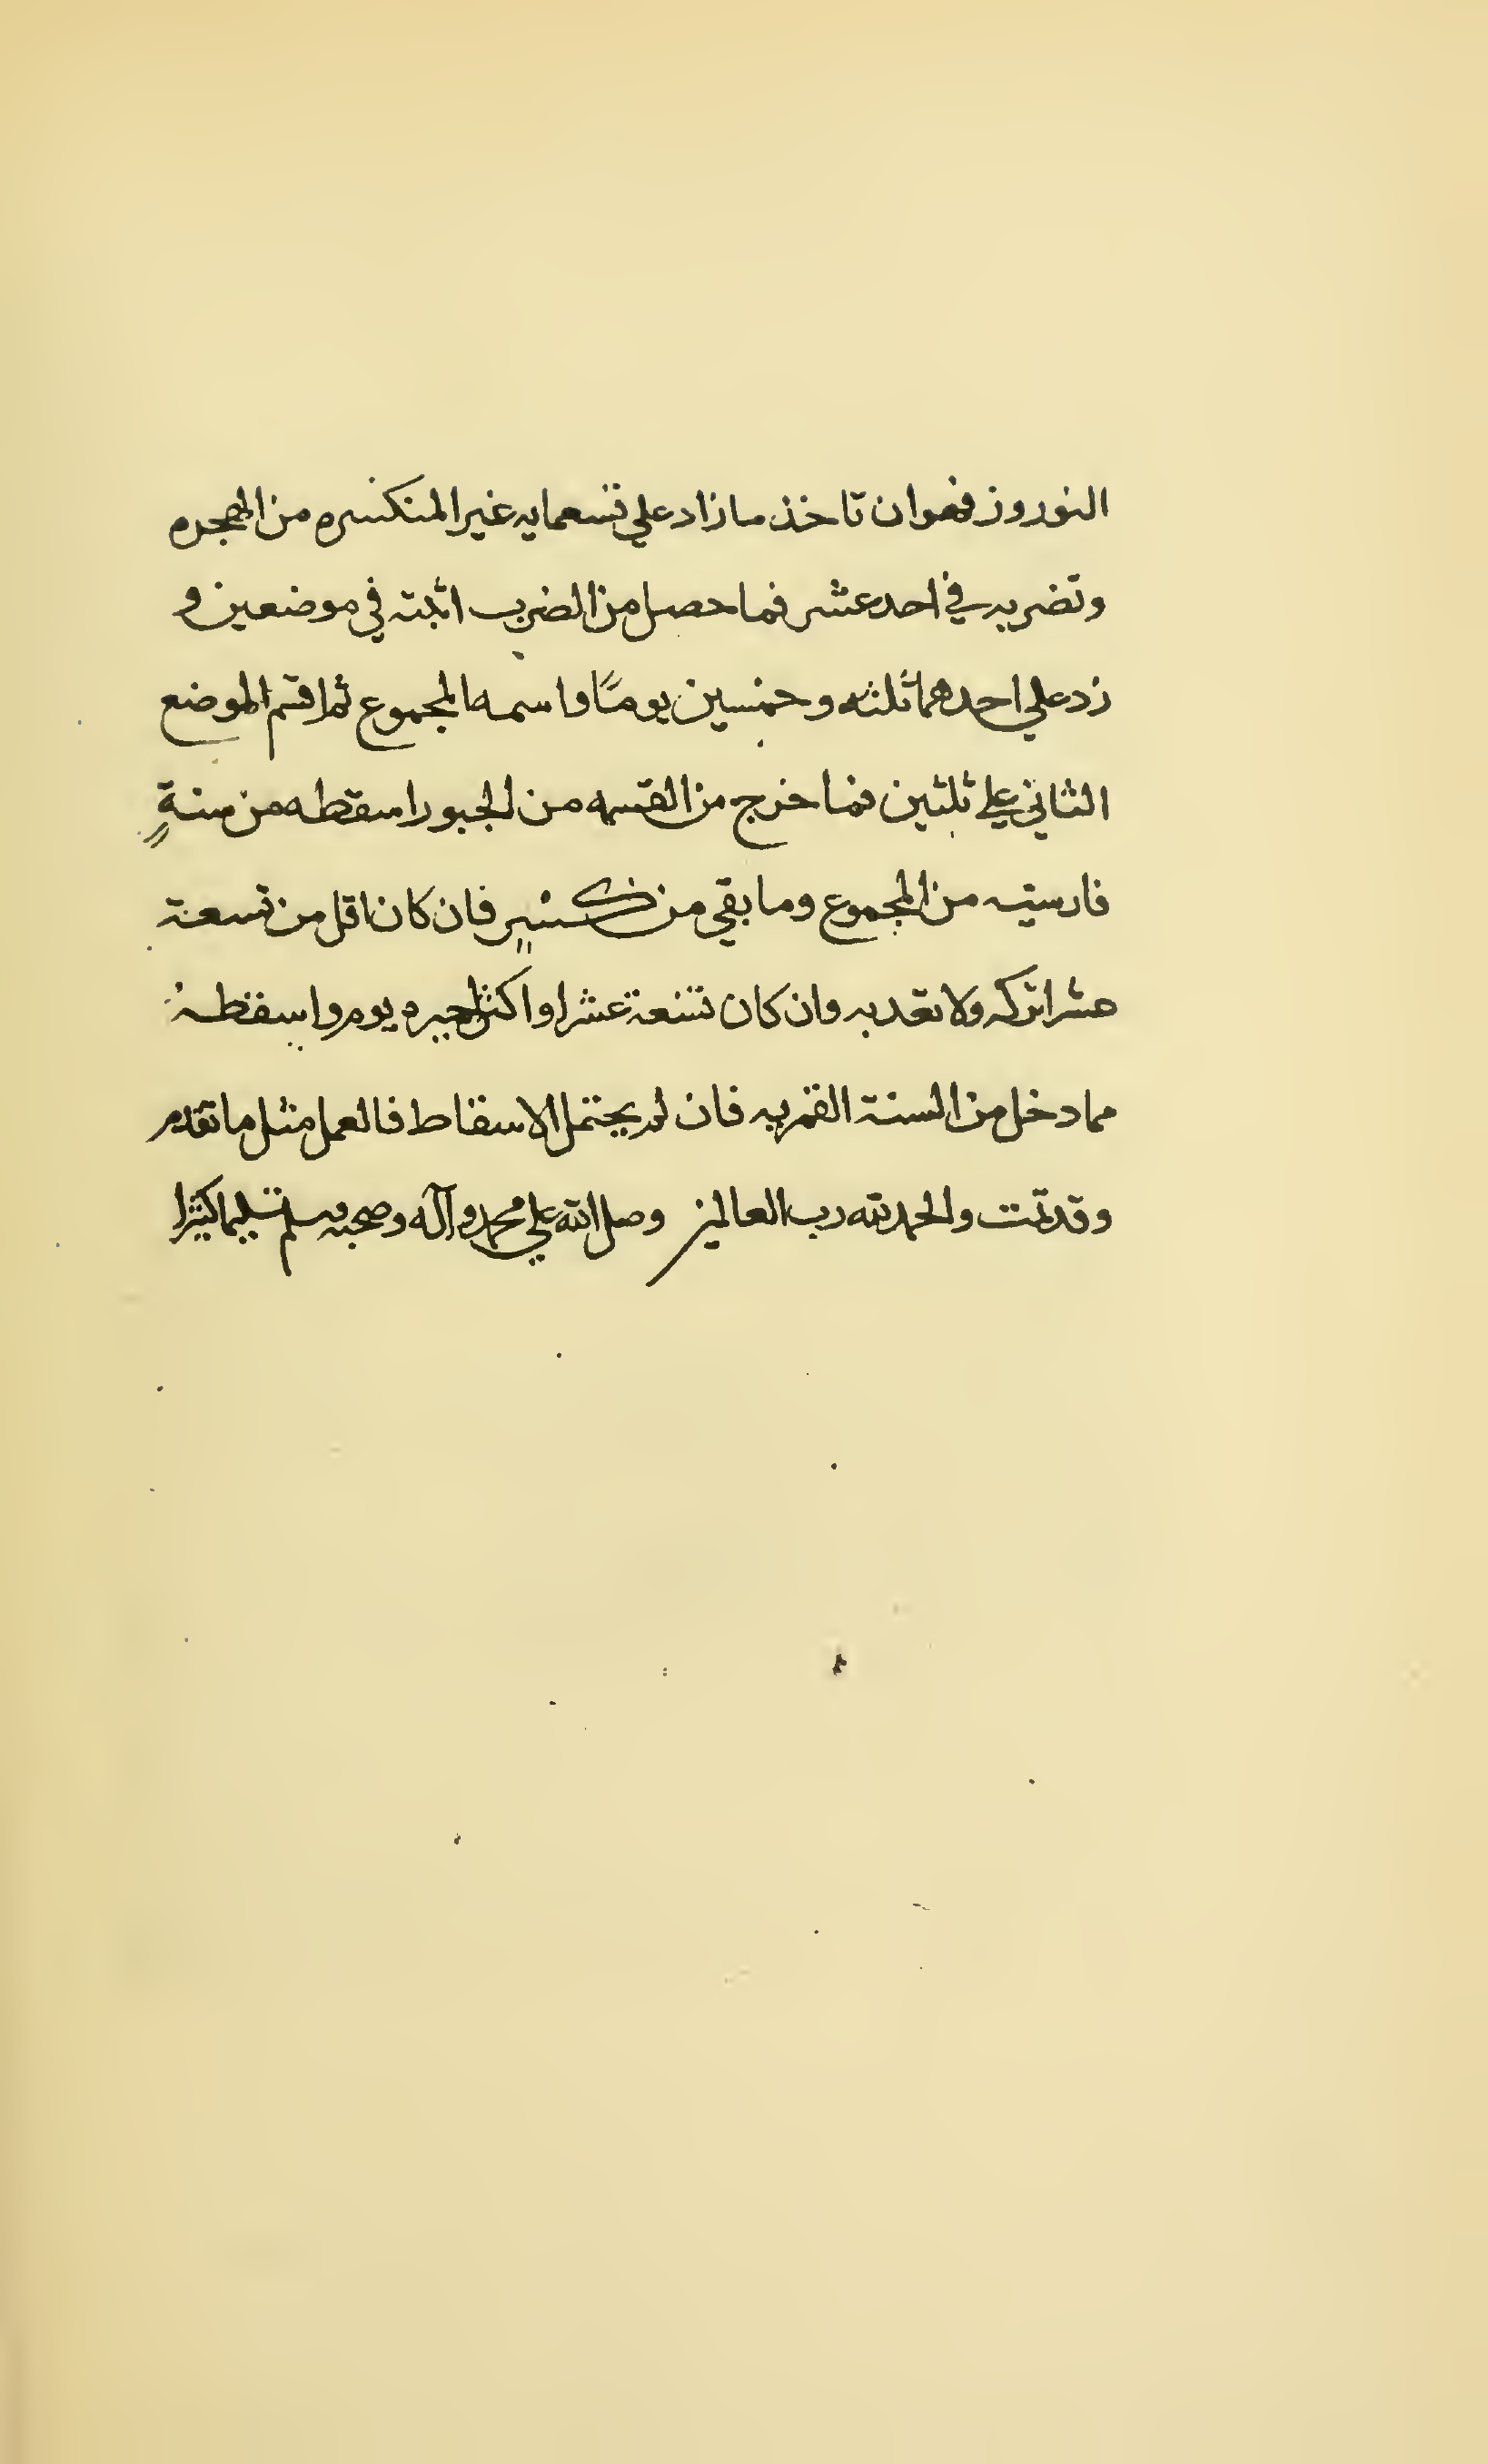 النوروز فهو ان تاخذ ما زاد علي تسعمايه غير المنكسره من الهجره
وتضربه في احد عشر فما حصل من الضرب اثبته في موضعين و
زد علي احدهما ثلثه وخمسين يومًا واسمه المجموع ثم اقسم الموضع
الثاني علي ثلثين فما خرج من القسمه من الجبور اسقطه من سنةٍ
فارسيه من المجموع وما بقي من كسر فان كان اقل من تسعة
عشر اتركه ولا تعد به وان كان تسعة عشر او اكثر اجبره يوم واسقطه
مما دخل من السنة القمريه فان لم يحتمل الاسقاط فالعمل مثل ما تقدم
وقد تمت والحمد لله رب العالمين وصل الله علي محمد وآله وصحبه وسلم تسليما كثيرا